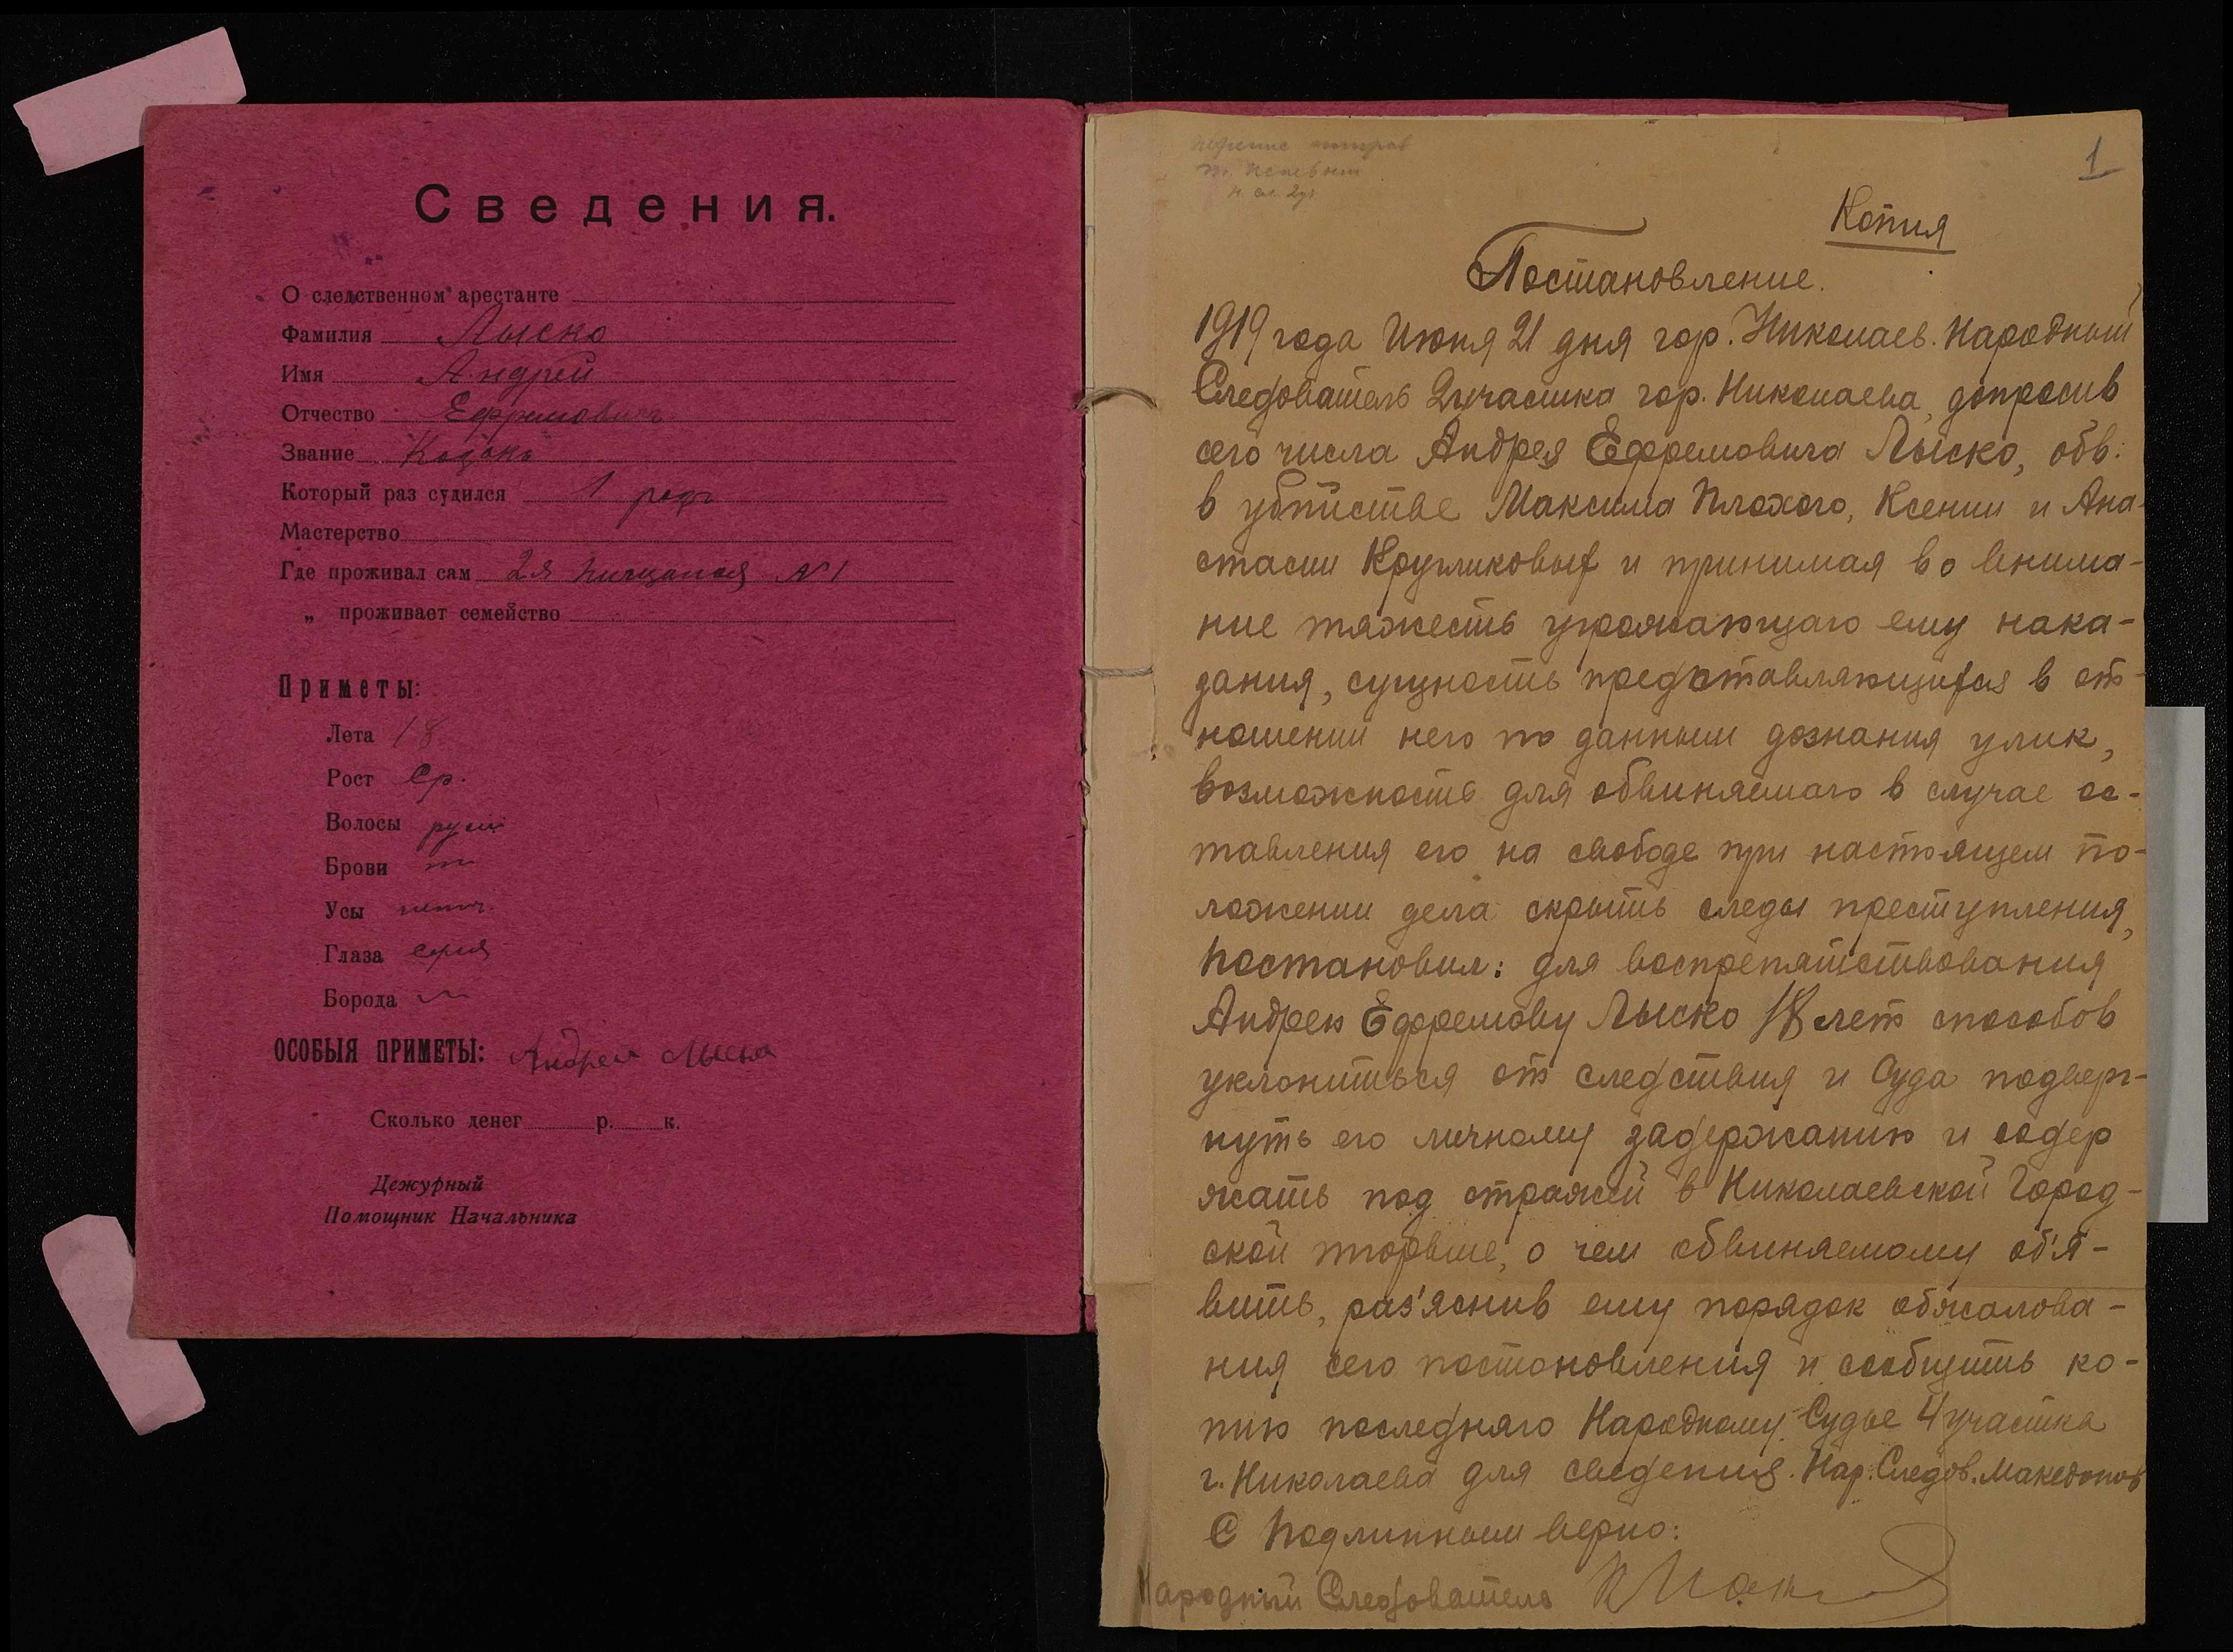 Сведения.
О следственном арестанте
Фамилия Лыско
Имя Андрей
Отчество Ефремовичъ
Звание Козакъ
Который раз судился 1 разъ
Мастерство
Где проживал сам 2я №1
„ проживает семейство
Приметы:
Лета 18
Рост Ср.
Волосы русы
Брови
Усы
Глаза серыя
Борода
ОСОБЫЯ ПРИМЕТЫ: Андрей Лыско
Сколько денег р. к.
Дежурный
Помощник Начальника
1
Копия
Постановление.
1919 года Июня 21 дня гор. Николаев. Народный
Следователь 2 участка гор. Николаева, допросив
сего числа Андрея Ефремовича Лыско, обв.
в убийстве Максима Плохого, Ксении и Ана-
стасии Кругликовых и принимая во внима-
ние тяжесть угрожающаго ему нака-
зания, сущность представляющихся в от-
ношении него по данным дознания улик,
возможность для обвиняемаго в случае ос-
тавления его на свободе при настоящем по-
ложении дела скрыть следы преступления,
постановил: для воспрепятствования
Андрею Ефремову Лыско 18 лет способов
уклониться от следствия и Суда подверг-
нуть его личному задержанию и содер
жать под стражей в Николаевской Город-
ской тюрьме, о чем обвиняемому об'я-
вить, раз'яснив ему порядок обжалова-
ния сего постановления и сообщить ко-
пию последняго Народному Судье 4 участка
г. Николаева для сведения. Нар. Следов. Македонов
С подлинным верно:
Народный Следователь